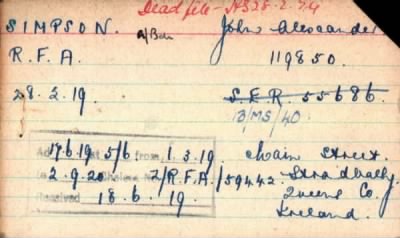 Dead file - AS28.2.24
SIMPSON. a/Bdr John Alexander
R.F.A. 119850.
28.2.19 S.E.R. 55686.
B/MS/40
17.6.19 5/6 from 1.3.19. Main Street.
2.9.20 2/R.F.A/59442 Stradbally
Received 18.6.19. Queens Co.
Ireland.